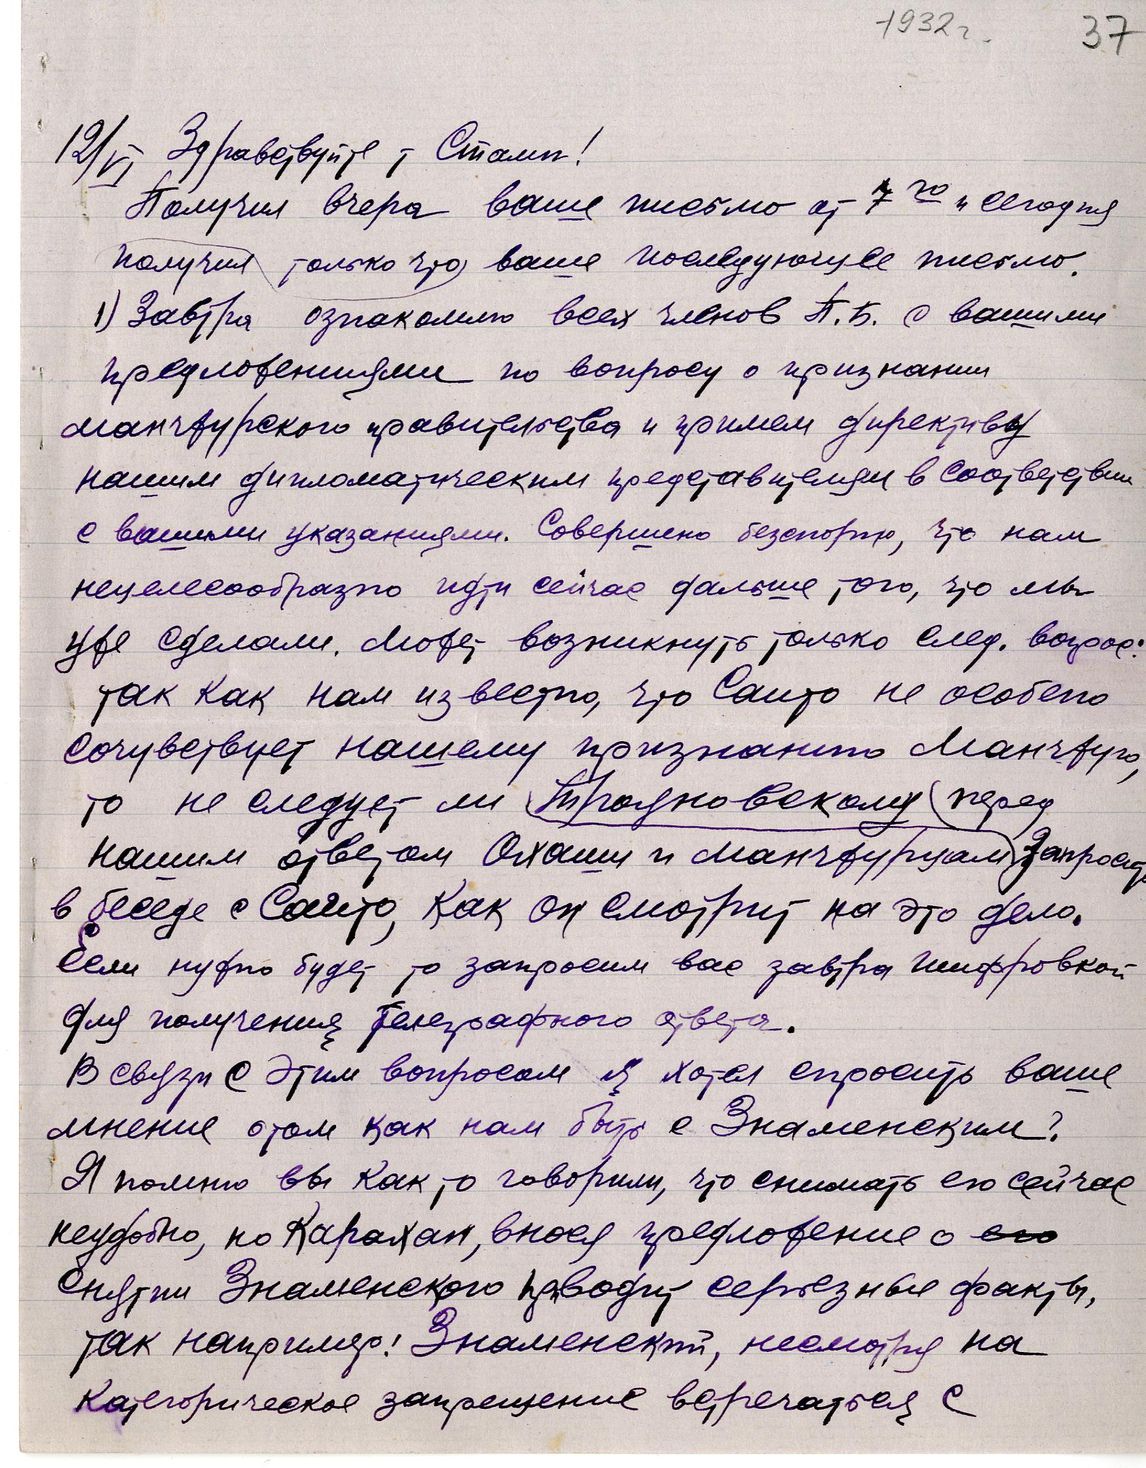 1932 г.
37
12/VI Здравствуйте т Сталин!
Получил вчера ваше письмо от 7го и сегодня
получил только что ваше последующее письмо.
1) Завтра ознакомлю всех членов П.Б. с вашими
предложениями по вопросу о признании
Манчжурского правительства и примем директиву
нашим дипломатическим представителям в соответствии
с вашими указаниями. Совершено безспорно, что нам
нецелесообразно идти сейчас дальше того, что мы
уже сделали. Может возникнуть только след. вопрос:
так как нам известно, что Саито не особено
сочувствует нашему признанию Манчжуго,
то не следует ли Трояновскому перед
нашим ответом Охаши и манчжурцам запросить
в беседе с Саито, как он смотрит на это дело.
Если нужно будет то запросим вас завтра шифровкой
для получения телеграфного ответа.
В связи с этим вопросом я хотел спросить ваше
мнение о том как нам быть с Знаменским?
Я помню вы как то говорили, что снимать его сейчас
неудобно, но Карахан, внося предложение о его
снятии Знаменского приводит серьезные факты,
так например: Знаменский, несмотря на
категорическое запрещение встречаться с